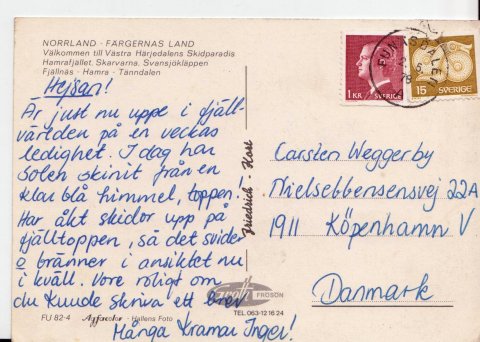 NORRLAND - FÄRGERNAS LAND
Välkommen till Västra Härjedalens Skidparadis
Hamrafjället, Skarvarna, Svansjökläppen
Fjällnäs - Hamra - Tänndalen
Hejsan!
Är just nu uppe i fjäll-
världen på en veckas
ledighet. I dag har
solen skinit från en
klar blå himmel, toppen!
Har åkt skidor upp på
fjälltoppen, så det svider
o bränner i ansiktet nu
i kväll. Vore roligt om
du kunde skriva ett brev
Många Kramar Inger!
FU 82-4 Agfacolor - Hallens Foto
Friedrich - Kort
FRÖSÖN
TEL. 063-12 16 24
1 KR SVERIGE
15 SVERIGE
Carsten Weggerby
Nielsebbensensvej 22A
1911 Köpenhamn V
Danmark